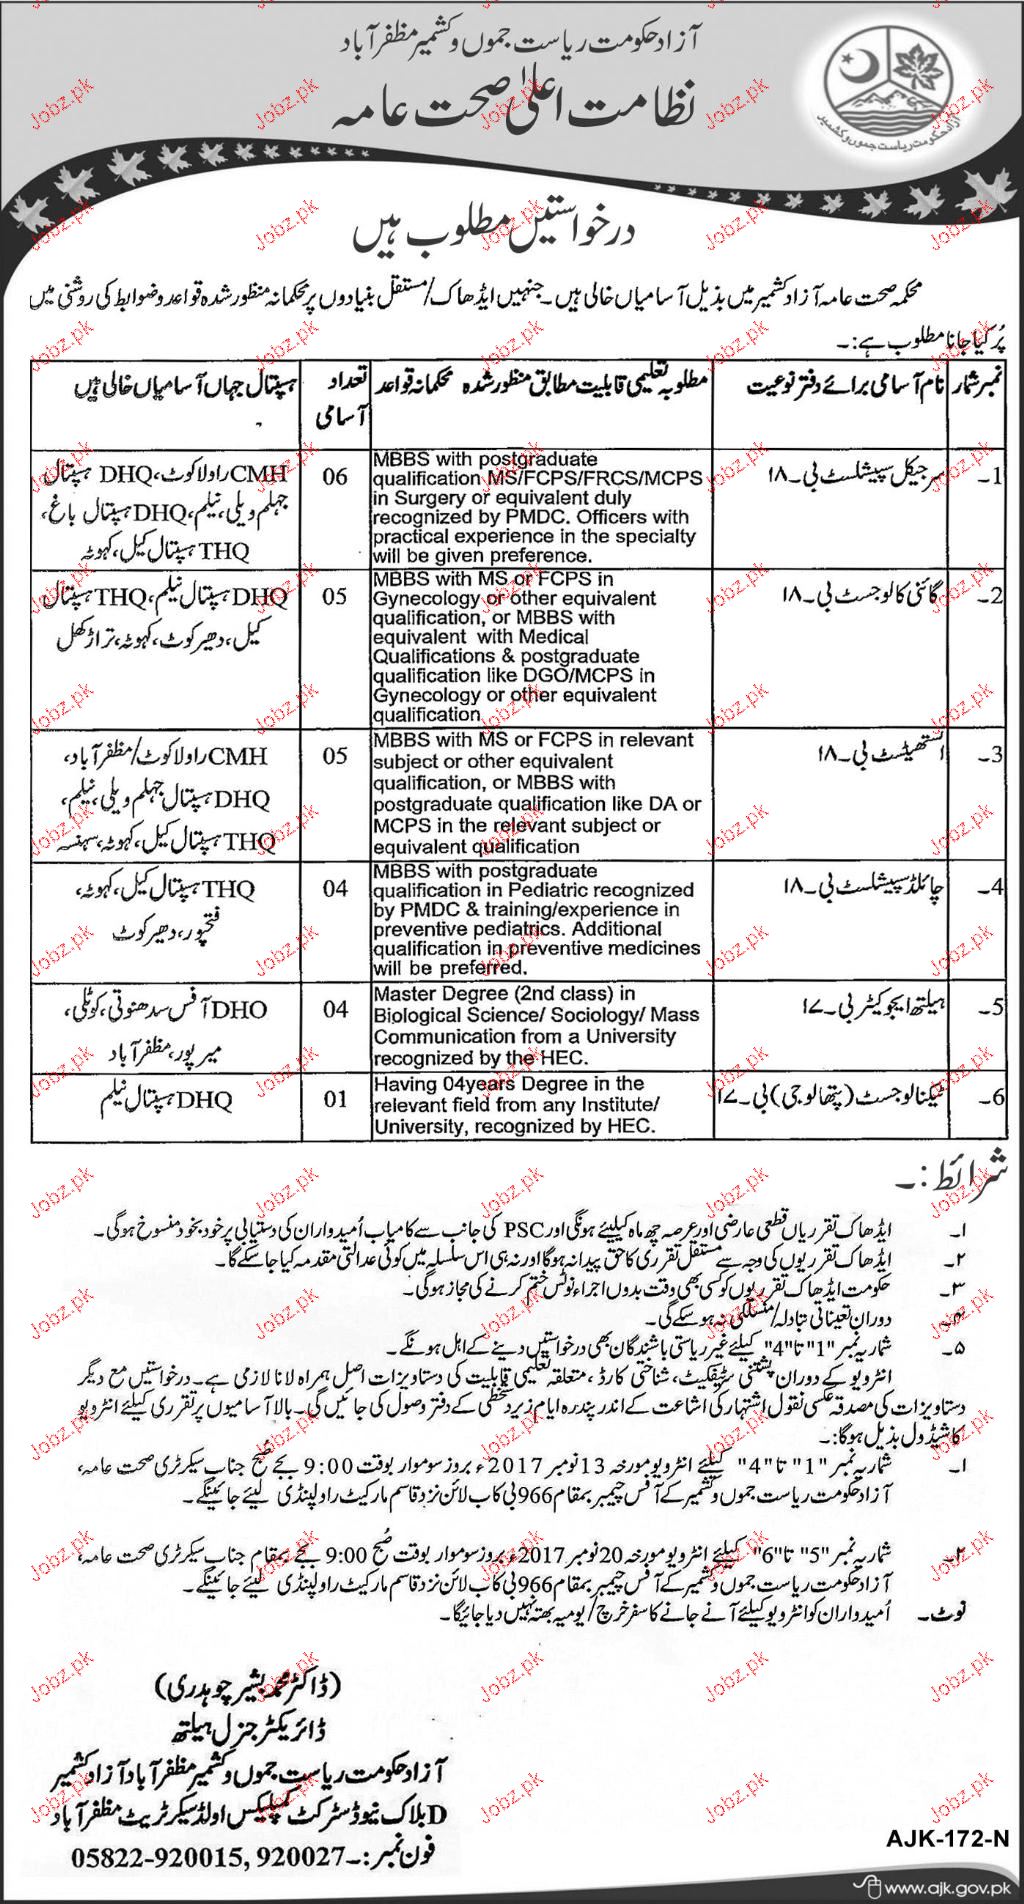 آزاد حکومت ریاست جموں و کشمیر مظفرآباد
نظامت اعلیٰ صحت عامہ
آزاد حکومت ریاست جموں و کشمیر
درخواستیں مطلوب ہیں
محکمہ صحت عامہ آزاد کشمیر میں بذیل آسامیاں خالی ہیں۔ جنہیں ایڈھاک/مستقل بنیادوں پر محکمانہ منظور شدہ قواعد و ضوابط کی روشنی میں
پُر کیا جانا مطلوب ہے:۔
نمبر شمار نام آسامی برائے دفتر نوعیت مطلوبہ تعلیمی قابلیت مطابق منظور شدہ محکمانہ قواعد تعداد آسامی ہسپتال جہاں آسامیاں خالی ہیں
1۔ سرجیکل سپیشلسٹ بی۔۱۸
MBBS with postgraduate
qualification MS/FCPS/FRCS/MCPS
in Surgery or equivalent duly
recognized by PMDC. Officers with
practical experience in the specialty
will be given preference.
06
CMH راولاکوٹ، DHQ ہسپتال
جہلم ویلی، نیلم، DHQ ہسپتال باغ،
THQ ہسپتال کیل، کہوٹہ
2۔ گائنی کالوجسٹ بی۔۱۸
MBBS with MS or FCPS in
Gynecology or other equivalent
qualification, or MBBS with
equivalent with Medical
Qualifications & postgraduate
qualification like DGO/MCPS in
Gynecology or other equivalent
qualification
05
DHQ ہسپتال نیلم، THQ ہسپتال
کیل، دھیرکوٹ، کہوٹہ، تراڑکھل
3۔ انستھیٹسٹ بی۔۱۸
MBBS with MS or FCPS in relevant
subject or other equivalent
qualification, or MBBS with
postgraduate qualification like DA or
MCPS in the relevant subject or
equivalent qualification
05
CMH راولاکوٹ/مظفرآباد،
DHQ ہسپتال جہلم ویلی، نیلم،
THQ ہسپتال کیل، کہوٹہ، سہنسہ
4۔ چائلڈ سپیشلسٹ بی۔۱۸
MBBS with postgraduate
qualification in Pediatric recognized
by PMDC & training/experience in
preventive pediatrics. Additional
qualification in preventive medicines
will be preferred.
04
THQ ہسپتال کیل، کہوٹہ،
فتحپور، دھیرکوٹ
5۔ ہیلتھ ایجوکیٹر بی۔۱۷
Master Degree (2nd class) in
Biological Science/ Sociology/ Mass
Communication from a University
recognized by the HEC.
04
DHO آفس سدھنوتی، کوٹلی،
میرپور، مظفرآباد
6۔ ٹیکنالوجسٹ (پتھالوجی) بی۔۱۷
Having 04years Degree in the
relevant field from any Institute/
University, recognized by HEC.
01
DHQ ہسپتال نیلم
شرائط:۔
۱۔ ایڈھاک تقرریاں قطعی عارضی اور عرصہ چھ ماہ کیلئے ہونگی اور PSC کی جانب سے کامیاب اُمیدواران کی دستیابی پر خود بخود منسوخ ہوگی۔
۲۔ ایڈھاک تقرریوں کی وجہ سے مستقل تقرری کا حق پیدا نہ ہوگا اور نہ ہی اس سلسلہ میں کوئی عدالتی مقدمہ کیا جا سکے گا۔
۳۔ حکومت ایڈھاک تقرریوں کو کسی بھی وقت بدوں اجراء نوٹس ختم کرنے کی مجاز ہوگی۔
۴۔ دوران تعیناتی تبادلہ/منسلکی نہ ہو سکے گی۔
۵۔ شماریہ نمبر "1" تا "4" کیلئے غیر ریاستی باشندگان بھی درخواستیں دینے کے اہل ہونگے۔
انٹرویو کے دوران پشتنی سٹیفکیٹ، شناختی کارڈ، متعلقہ تعلیمی قابلیت کی دستاویزات اصل ہمراہ لانا لازمی ہے۔ درخواستیں مع دیگر
دستاویزات کی مصدقہ عکسی نقول اشتہار کی اشاعت کے اندر پندرہ ایام زیر دستخطی کے دفتر وصول کی جائیں گی۔ بالا آسامیوں پر تقرری کیلئے انٹرویو
کا شیڈول بذیل ہوگا:۔
۱۔ شماریہ نمبر "1" تا "4" کیلئے انٹرویو مورخہ 13 نومبر 2017ء بروز سوموار بوقت 9:00 بجے صُبح جناب سیکرٹری صحت عامہ،
آزاد حکومت ریاست جموں و کشمیر کے آفس چیمبر بمقام 966 بی کاب لائن نزد قاسم مارکیٹ راولپنڈی کیئے جائینگے۔
۲۔ شماریہ نمبر "5" تا "6" کیلئے انٹرویو مورخہ 20 نومبر 2017ء بروز سوموار بوقت صُبح 9:00 بجے بمقام جناب سیکرٹری صحت عامہ،
آزاد حکومت ریاست جموں و کشمیر کے آفس چیمبر بمقام 966 بی کاب لائن نزد قاسم مارکیٹ راولپنڈی کیئے جائینگے۔
نوٹ۔ اُمیدواران کو انٹرویو کیلئے آنے جانے کا سفر خرچ/یومیہ بھتہ نہیں دیا جائیگا۔
(ڈاکٹر محمد بشیر چوہدری)
ڈائریکٹر جنرل ہیلتھ
آزاد حکومت ریاست جموں و کشمیر مظفرآباد آزاد کشمیر
D بلاک نیو ڈسٹرکٹ کمپلیکس اولڈ سیکرٹریٹ مظفرآباد
فون نمبر:۔ 05822-920015, 920027
AJK-172-N
www.ajk.gov.pk
Jobz.pk